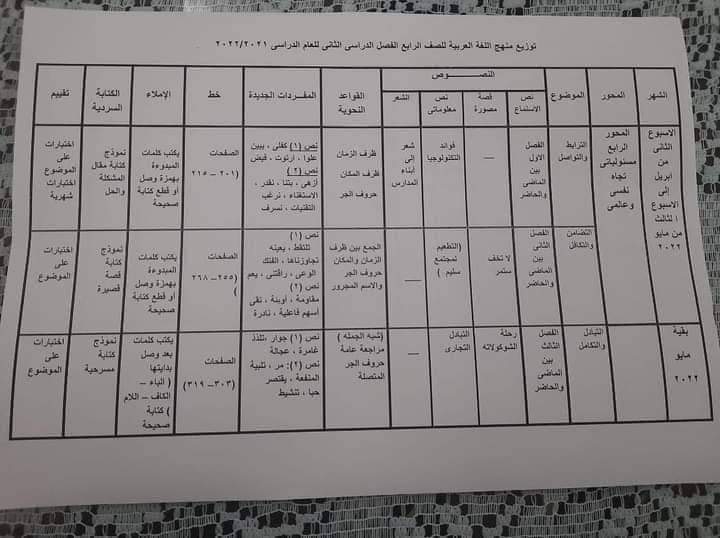 توزيع منهج اللغة العربية للصف الرابع الفصل الدراسى الثانى للعام الدراسى ٢٠٢٢/٢٠٢١
الشهر
المحور
الموضوع
النصــــوص
نص الاستماع
قصة مصورة
نص معلوماتى
الشعر
القواعد النحوية
المفردات الجديدة
خط
الإملاء
الكتابة السردية
تقييم
الاسبوع
الثانى
من
ابريل
إلى
الاسبوع
الثالث
من مايو
٢٠٢٢
المحور
الرابع
مسئولياتى
تجاه
نفسى
وعالمى
الترابط
والتواصل
الفصل
الاول
بين
الماضى
والحاضر
—
فوائد
التكنولوجيا
شعر
إلى
أبناء
المدارس
ظرف الزمان
ظرف المكان
حروف الجر
نص (١) كفلى ، يبين
علوا ، ارتوت ، فيض
نص (٢)
أزهى ، بتنا ، نقدر ،
الاستغناء ، نرغب
التقنيات ، نسرف
الصفحات
(٢٠١ – ٢١٥
يكتب كلمات
المبدوءة
بهمزة وصل
أو قطع كتابة
صحيحة
نموذج
كتابة مقال
المشكلة
والحل
اختبارات
على
الموضوع
اختبارات
شهرية
التضامن
والتكافل
الفصل
الثانى
بين
الماضى
والحاضر
لا تخف
ستمر
(التطعيم
لمجتمع
سليم )
—
الجمع بين ظرف
الزمان والمكان
حروف الجر
والاسم المجرور
نص (١)
تلتقط ، يعينه
تجاوزناها ، الفتك
الوعى ، راقتنى ، يعم
نص (٢)
مقاومة ، أوبئة ، نقى
أسهم فاعلية ، نادرة
الصفحات
(٢٥٥– ٢٦٨
)
يكتب كلمات
المبدوءة
بهمزة وصل
أو قطع كتابة
صحيحة
نموذج
كتابة
قصة
قصيرة
اختبارات
على
الموضوع
بقية
مايو
٢٠٢٢
التبادل
والتكامل
الفصل
الثالث
بين
الماضى
والحاضر
رحلة
الشوكولاته
التبادل
التجارى
—
(شبه الجمله )
مراجعة عامة
حروف الجر
المتصلة
نص (١) جوار ،تلذذ
غامرة ، عجالة
نص (٢): مر ، تلبية
المنفعة ، يقتصر
حبا ، تنشيط
الصفحات
(٣٠٣– ٣١٩)
يكتب كلمات
بعد وصل
بدايتها
( الباء –
الكاف – اللام
) كتابة
صحيحة
نموذج
كتابة
مسرحية
اختبارات
على
الموضوع